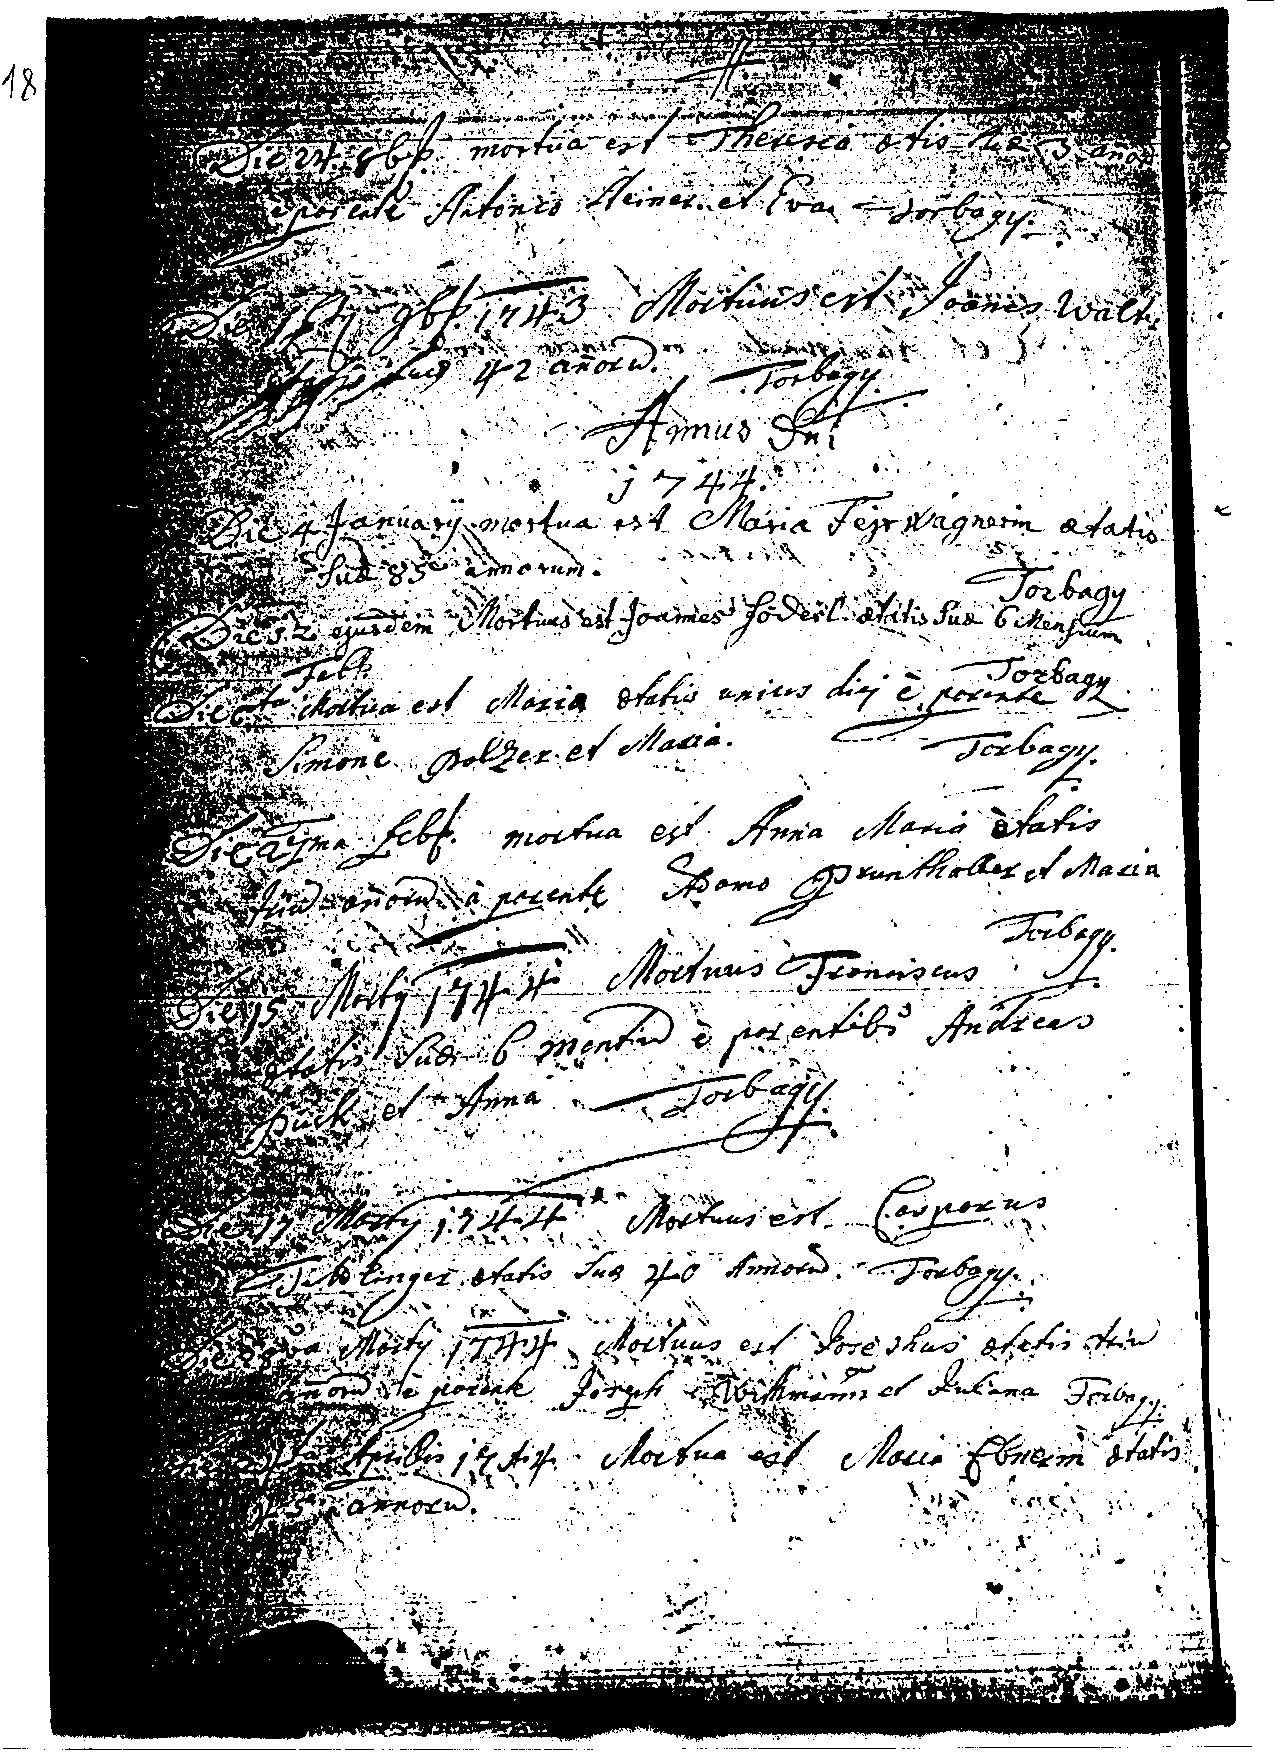 18
Die 24. 8bris mortua est Theresia ætis suæ 3 añorũ
e parente Antonio Steiner et Eva Torbagy.
Die 9bris 1743 Mortuus est Joañes Walt
suæ 42 añorũ. Torbagy.
Annus Dni
1744.
Die 4 January mortua est Maria Feyrwagnerin ætatis
Suæ 85 annorum. Torbagy
Die 12 ejusdem Mortuus est Joannes Höderl ætatis Suæ 6 Mensium
Torbagy
Febr
Die 6ta Mortua est Maria ætatis unius diej è parente
Simone Polzer et Maria. Torbagy.
Die Febr. mortua est Anna Maria ætatis
triũ añorũ à parente Adamo Prunthaller et Maria
Torbagy.
Die 15 Marty 1744 Mortuus Franciscus
ætatis Suæ 6 mensiũ è parentibs Andreas
Puck et Anna Torbagy.
Die 17 Marty 1744 Mortuus est Casparus
ætatis Suæ 40 Annorũ. Torbagy.
Die 28va Marty 1744 Mortuus est Josephus ætatis triũ
añorũ è parente Joseph Withmann et Juliana Torbagy.
Aprilis 1744. Mortua est Maria Ebnerin ætatis
annorũ.